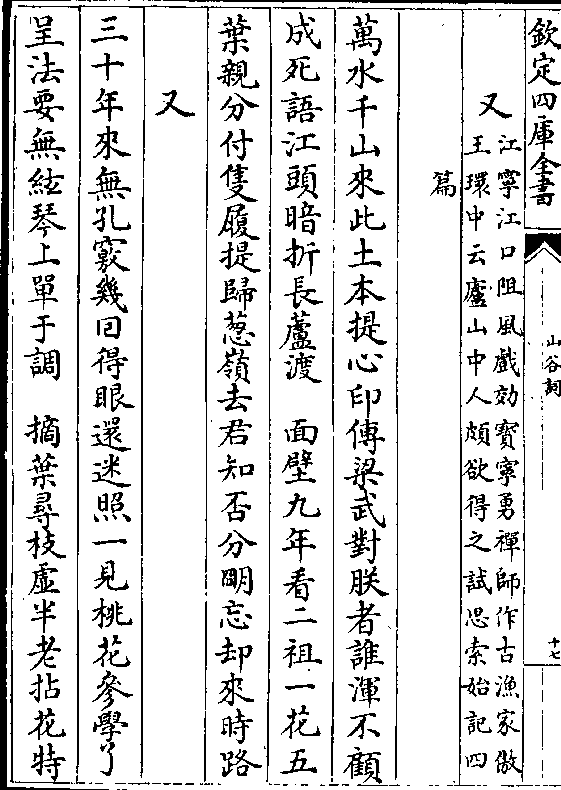 欽定四庫全書
山谷詞
十七
又
江寧江口阻風戲効寳寧勇禪師作古漁家傲
王環中云廬山中人頗欲得之試思索始記四
篇
萬水千山來此土本提心印傳梁武對朕者誰渾不顧
成死語江頭暗折長蘆渡　面壁九年看二祖一花五
葉親分付隻履提歸葱嶺去君知否分明忘却來時路
又
三十年來無孔竅幾回得眼還迷照一見桃花參學了
呈法要無絃琴上單于調　摘葉尋枝虛半老拈花特